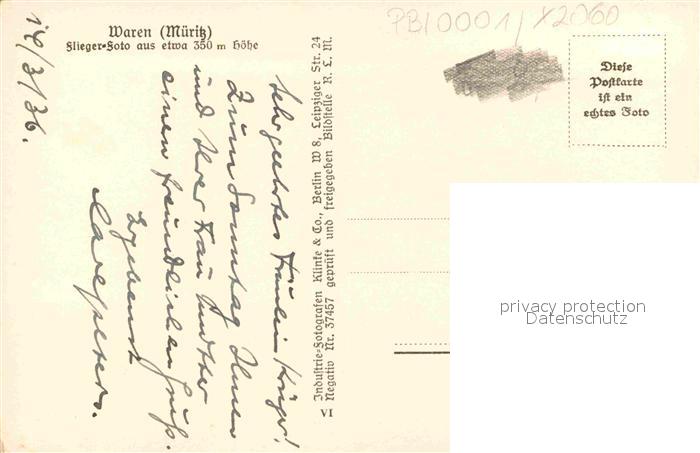 Waren (Müritz)
Flieger-Foto aus etwa 350 m Höhe
14/3/36.
Sehr geehrtes Fräulein Krüger!
Zum Sonntag Ihnen
und Ihrer Frau Mutter
einen freundlichen Gruß.
Ergebenst
Industrie-Fotografen Klinke & Co., Berlin W 8, Leipziger Str. 24
Negativ Nr. 37457 geprüft und freigegeben Bildstelle R. L. M.
VI
PB10001/X2060
Diese
Postkarte
ist ein
echtes Foto
privacy protection
Datenschutz